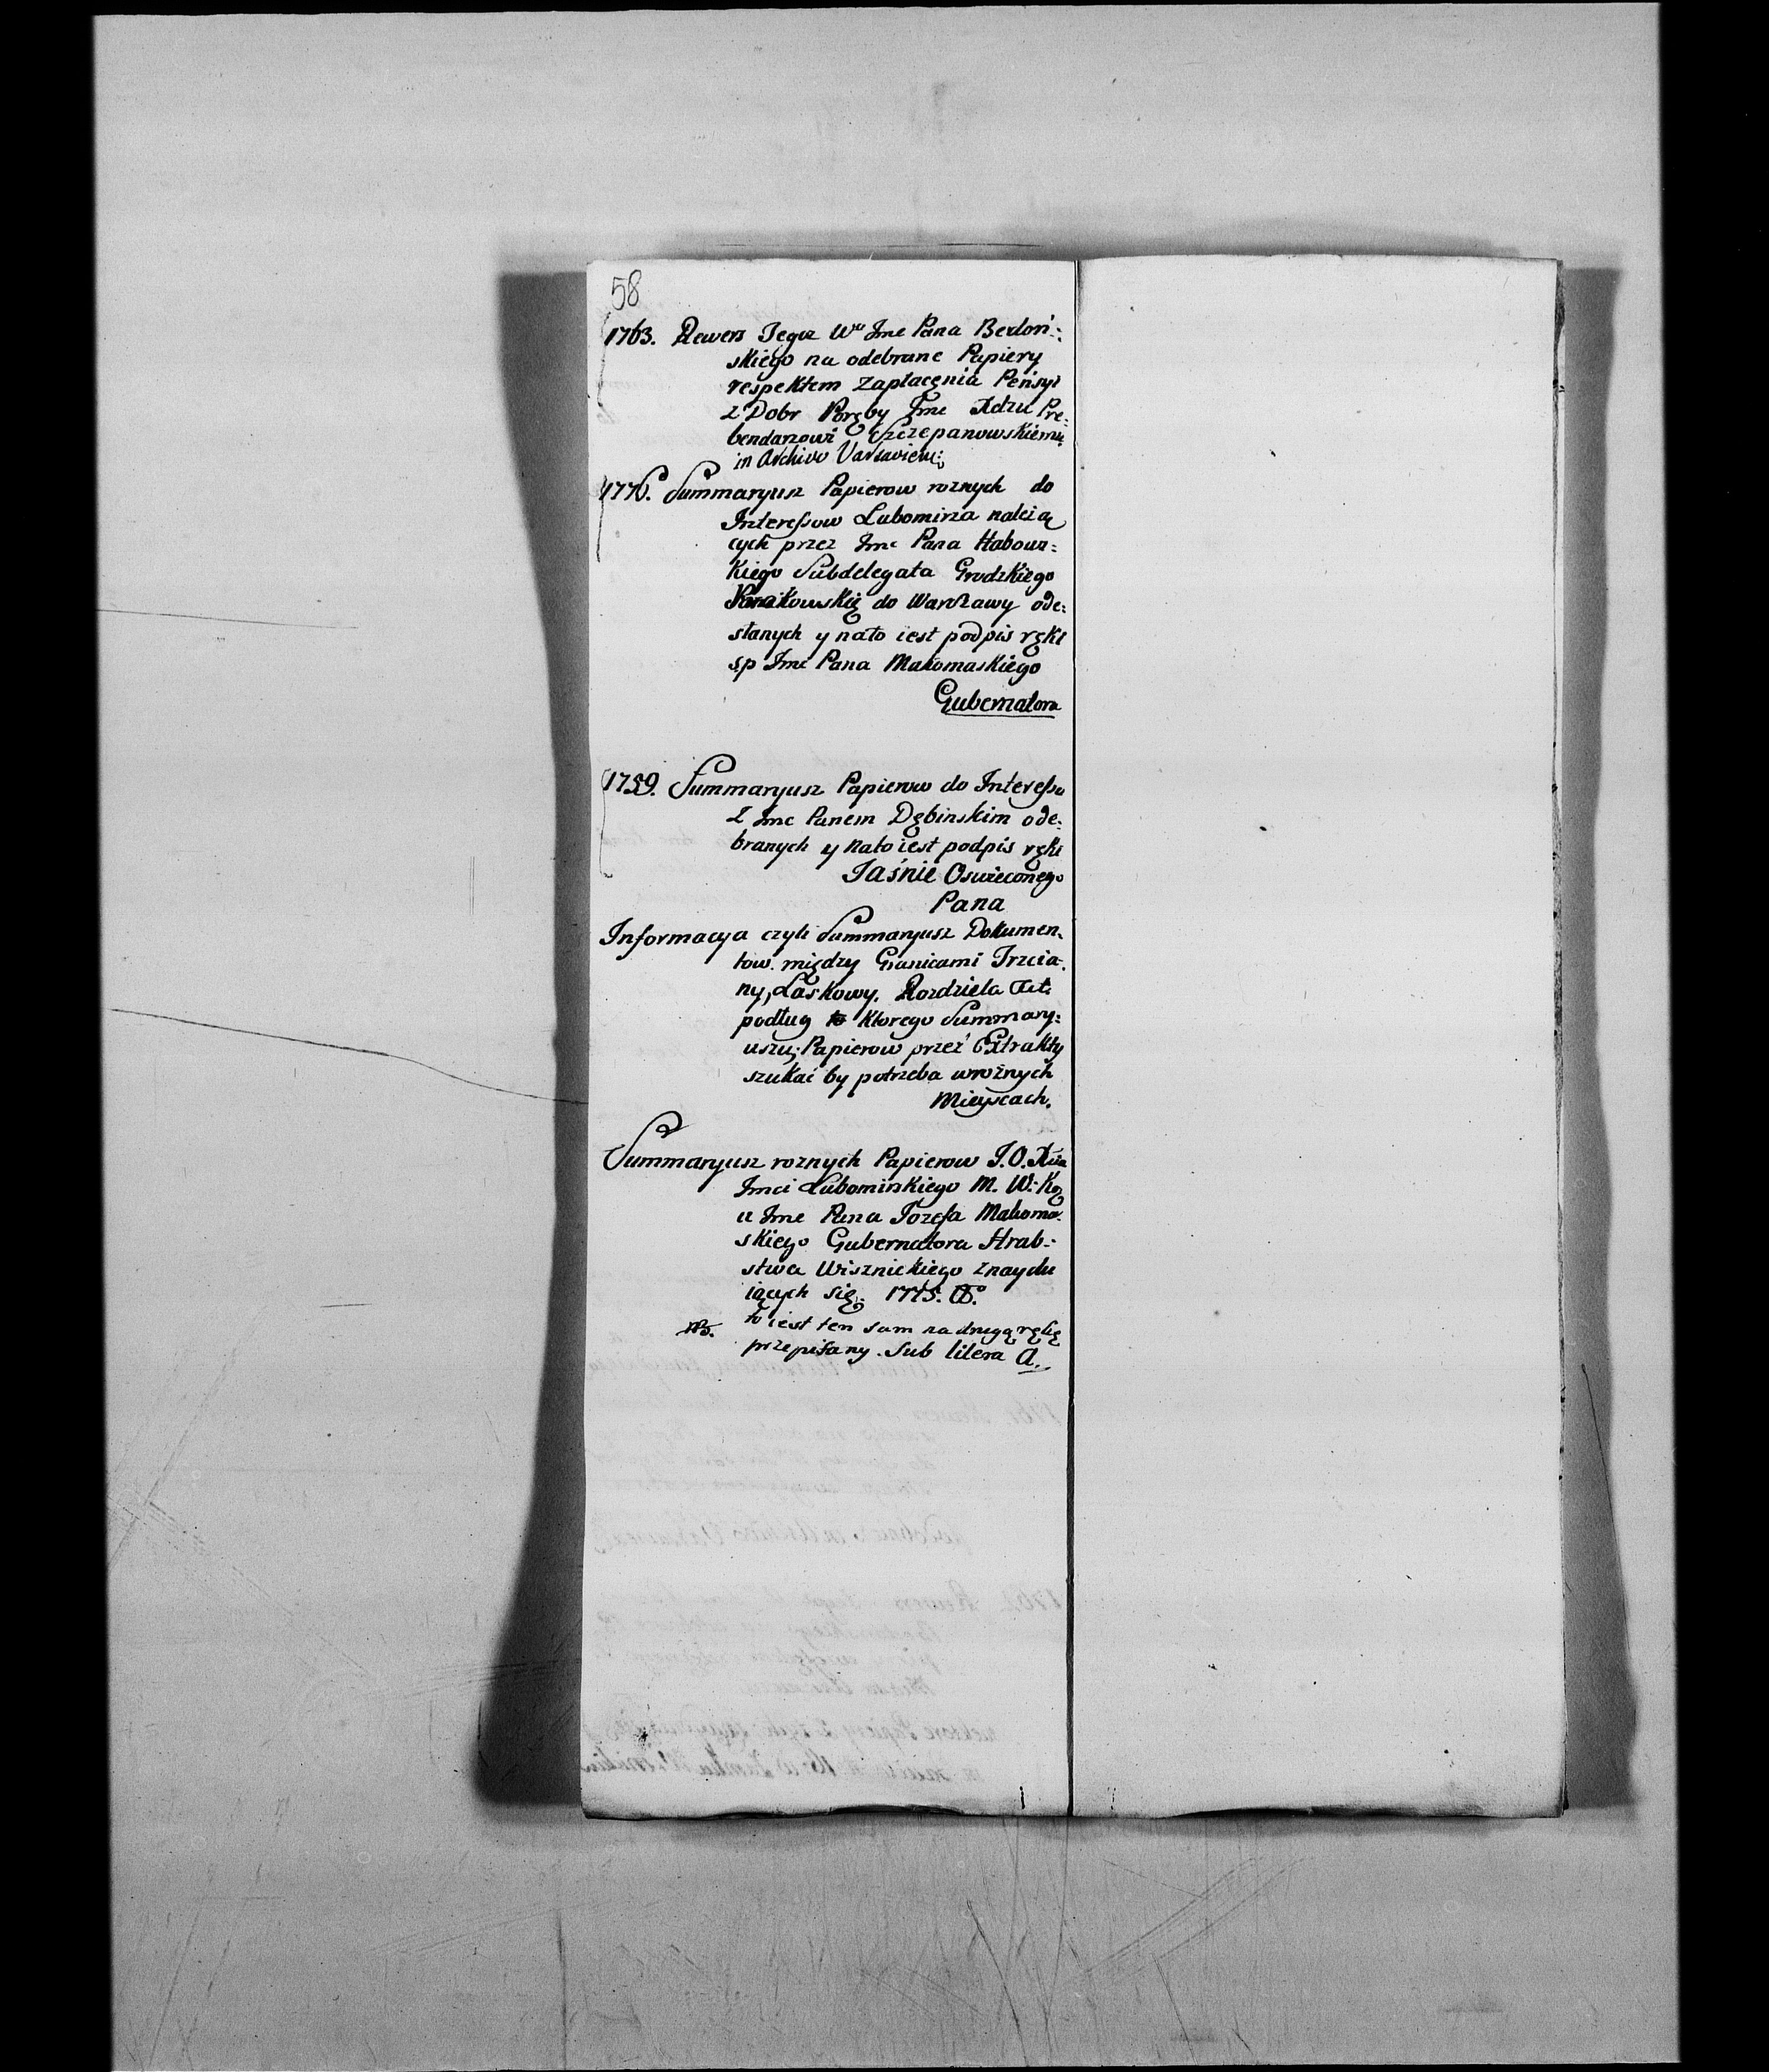 58
1763. Rewers Tegoz Wo Jmc Pana Berloń:
skiego na odebrane Papiery
respektem zapłacęnia Pensyi
z Dobr Poręby Jmc Xdzu Pre:
bendarzowi Szczepanowskiemu
in Archivo Varsaviens:
1776. Summaryusz Papierow roznych do
Interessow Lubomirza należą
cych przez Jmc Pana Habour:
kiego Subdelegata Grodzkiego
Krakowskię do Warszawy ode:
słanych y nato iest podpis ręki
sp Jmc Pana Makomaskiego
Gubernatora
1759. Summaryusz Papierow do Interessu
z Jmc Panem Dębinskim ode:
branych y nato iest podpis ręki
Jaśnie Oswieconego
Pana
Informacya czyli Summaryusz Dokumen:
tow. między Granicami Trzcia:
ny, Laskowy, Rozdziela &ct:
podług ktorego Summary:
uszu; Papierow przez Extrakty
szukać by potrzeba wrożnych
Mieyscach.
Summaryusz roznych Papierow J.O. Xcia
Jmci Lubomirskiego M. W: Ko
u Jmc Pana Jozefa Makoma:
skiego Gubernatora Hrab:
stwa Wisznickiego znaydu
iących się: 1775. Ao.
NB. to iest ten sam na drugą rękę
przepisany. Sub litera A.